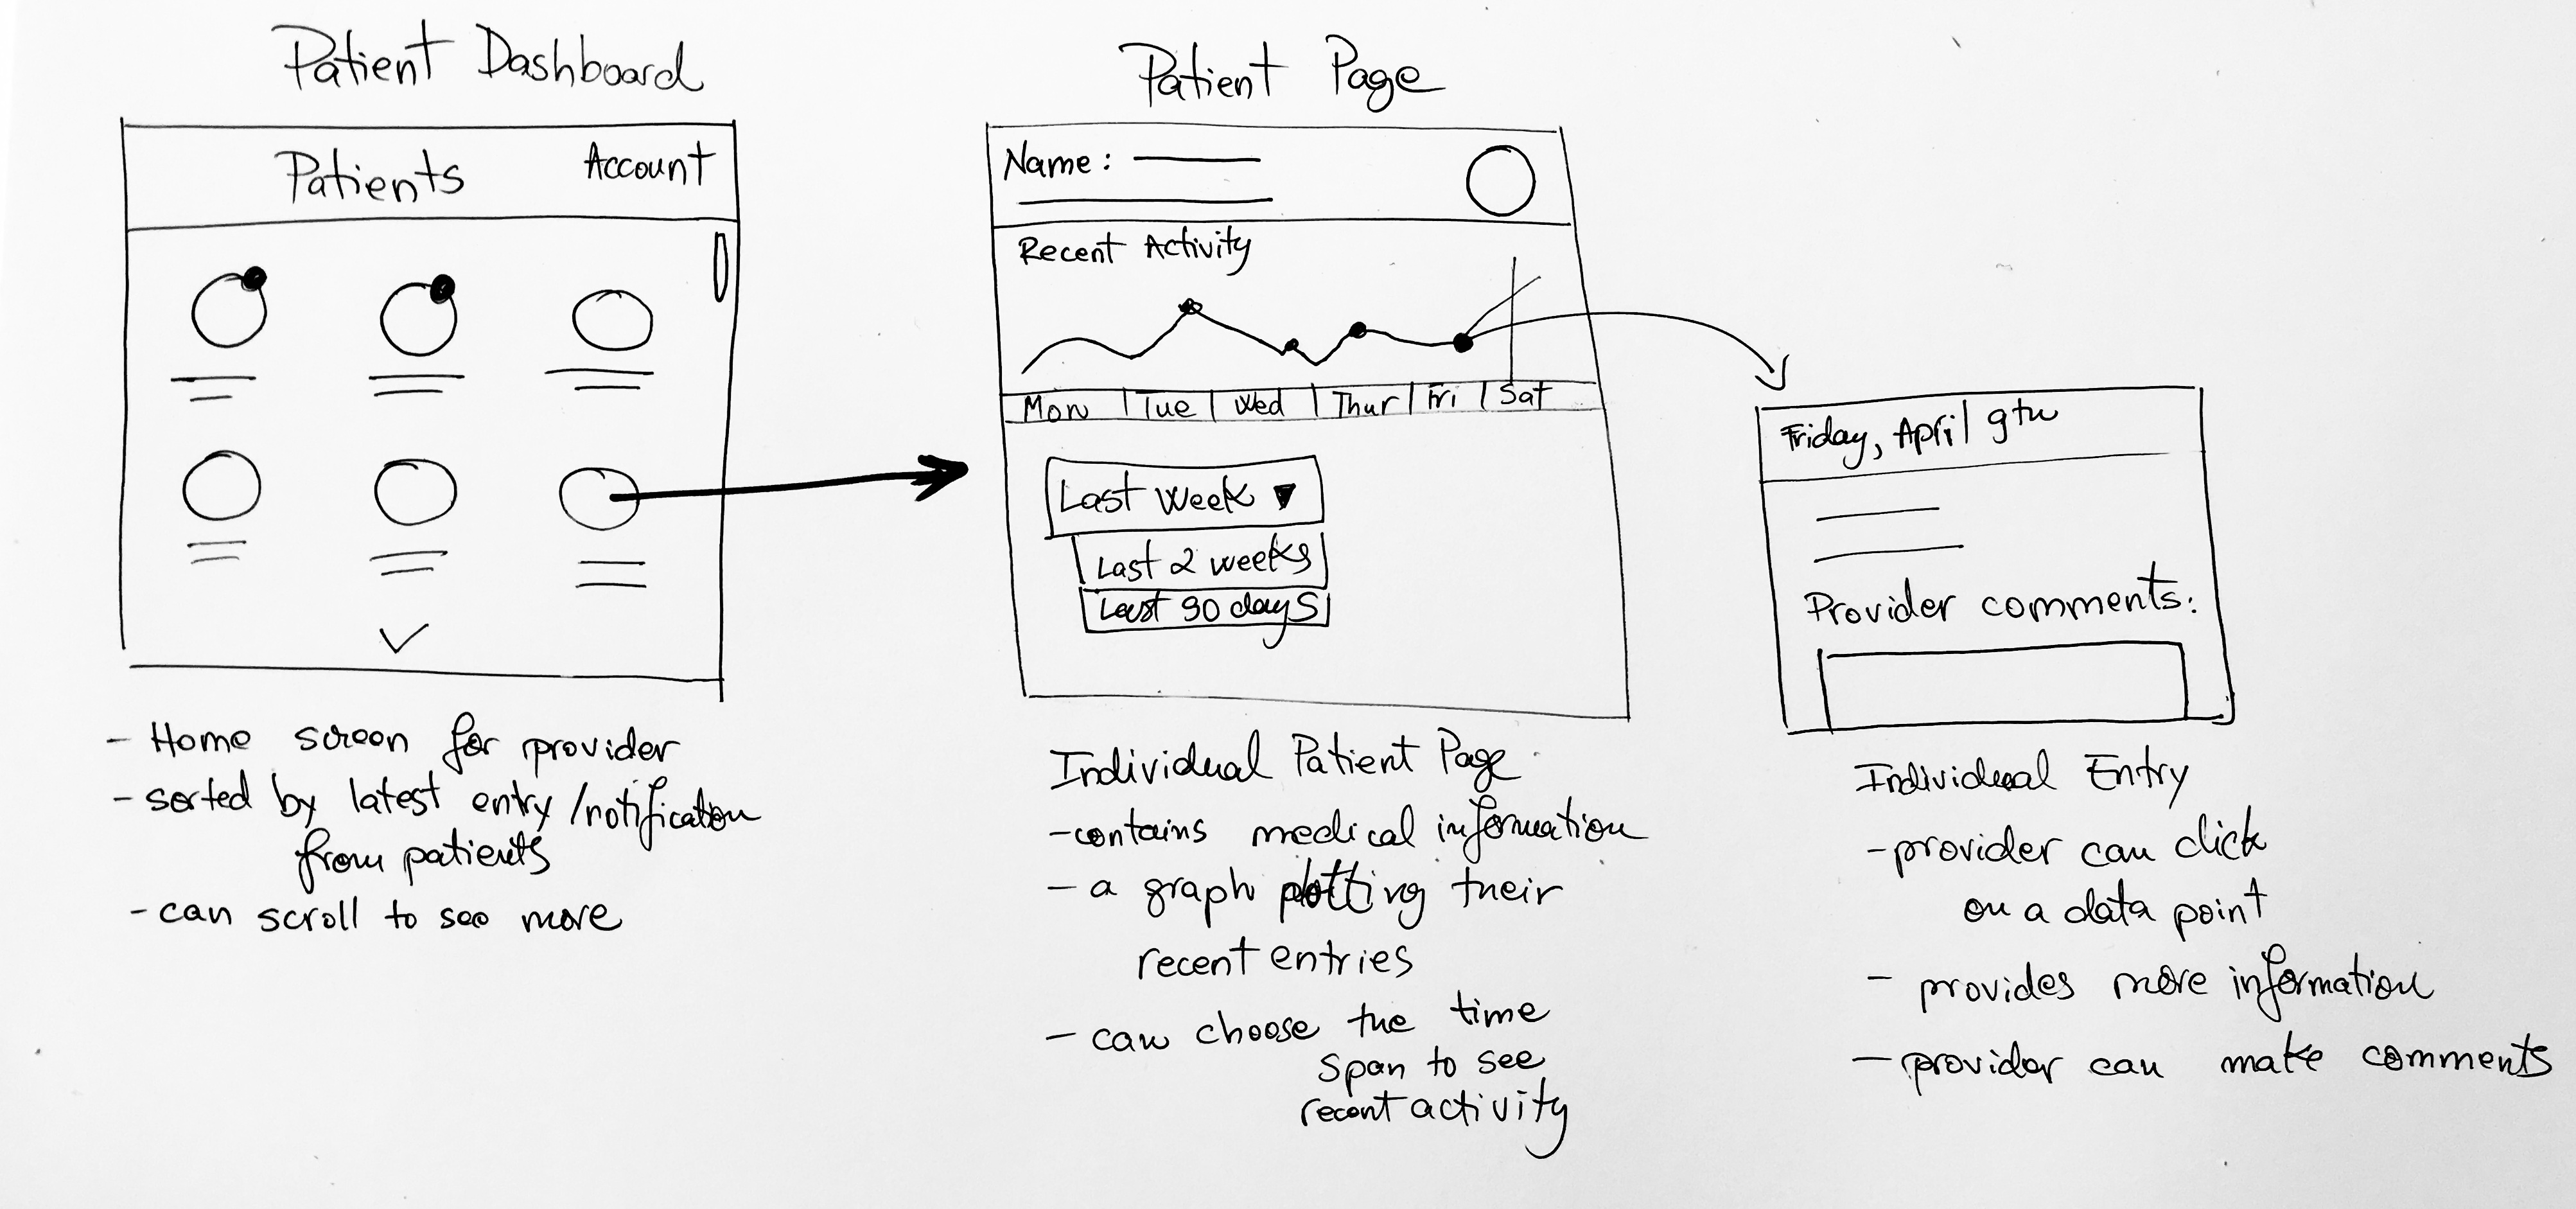 Patient Dashboard
Patients
Account
- Home screen for provider
- sorted by latest entry/notification
from patients
- can scroll to see more
Patient Page
Name:
Recent Activity
Mon | Tue | Wed | Thur | Fri | Sat
Last Week ▼
Last 2 weeks
Last 90 days
Individual Patient Page
- contains medical information
- a graph plotting their
recent entries
- can choose the time
span to see
recent activity
Friday, April 9th
Provider comments:
Individual Entry
- provider can click
on a data point
- provides more information
- provider can make comments